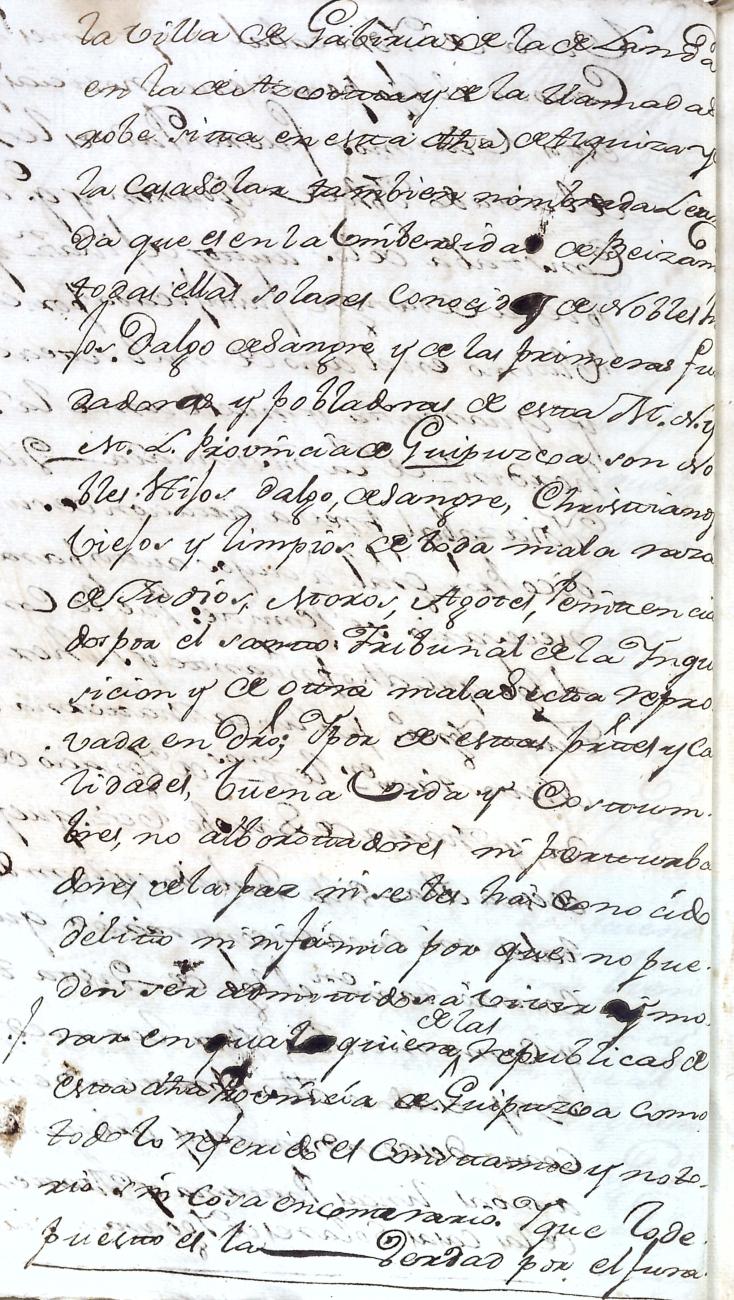 la Villa de Gabiria de la de Landa
en la de Azcoitia y de la llamada
robe sitta en esta dha de Alquiza y
la Casa Solar tambien nombrada
da que es en la Vnibersidad de Beizam
todas ellas solares Conocidas de Nobles hi
jos Dalgo de Sangre y de las primeras fu
radoras y pobladoras de esta M. N. y
M. L. Provincia de Guipuzcoa son No
bles Hijos dalgo, de Sangre, Christianos
Viejos y limpios de toda mala raza
de Judios, Moros, Agotes, Penitencia
dos por el santo Tribunal de la Inqui
sicion y de otra mala Secta repro
vada en Dro; Y por de estas prtes y ca
lidades, buena Vida y Costum.
bres, no alborotadores ni perturba
dores de la paz ni se les ha conocido
delito ni infamia por que no pue.
den ser admitidos a Vivir y mo.
rar en qualquiera de las republicas de
esta dha Provincia de Guipuzcoa como
todo lo referido es Constante y noto.
rio sin Cosa en contrario. Y que lo de.
puesto es la Verdad por el jura